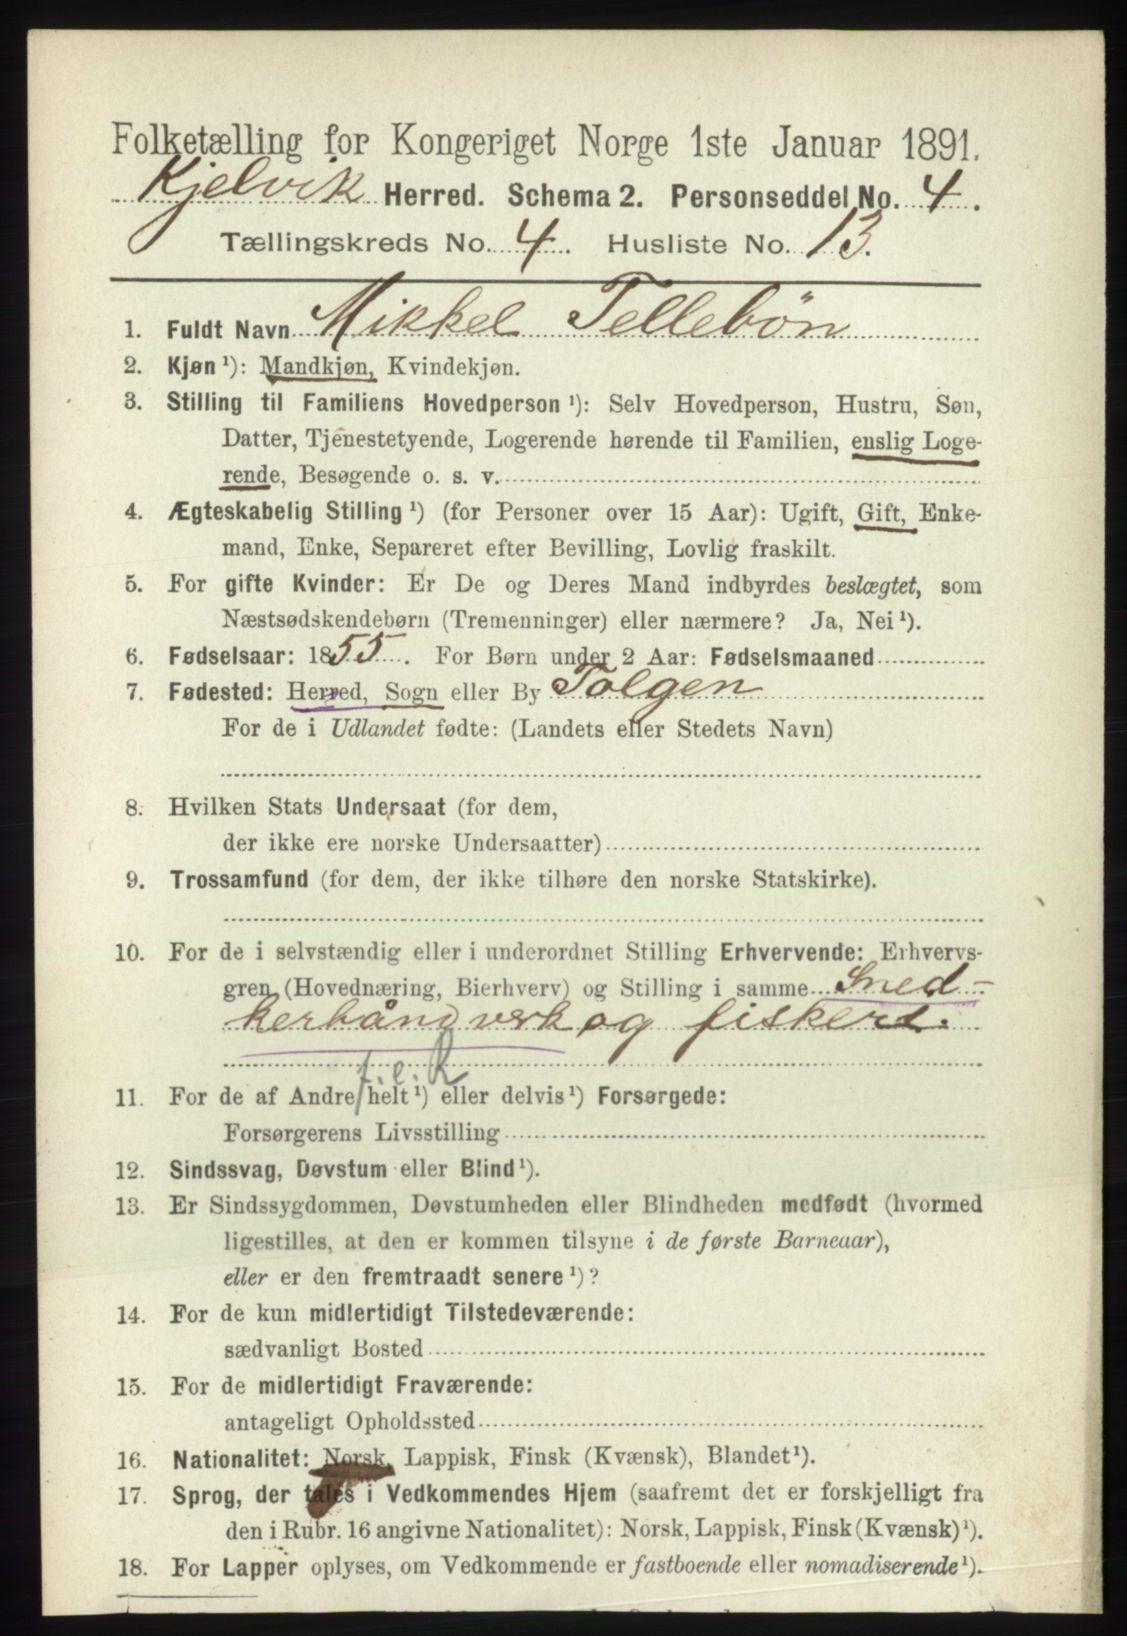 Folketælling for Kongeriget Norge 1ste Januar 1891.
Kjelvik Herred. Schema 2. Personseddel No. 4.
Tællingskreds No. 4. Husliste No. 13.
1. Fuldt Navn Mikkel Tellebön
2. Kjøn ¹): Mandkjøn, Kvindekjøn.
3. Stilling til Familiens Hovedperson ¹): Selv Hovedperson, Hustru, Søn,
Datter, Tjenestetyende, Logerende hørende til Familien, enslig Loge-
rende, Besøgende o. s. v.
4. Ægteskabelig Stilling ¹) (for Personer over 15 Aar): Ugift, Gift, Enke-
mand, Enke, Separeret efter Bevilling, Lovlig fraskilt.
5. For gifte Kvinder: Er De og Deres Mand indbyrdes beslægtet, som
Næstsødskendebørn (Tremenninger) eller nærmere? Ja, Nei ¹).
6. Fødselsaar: 1855. For Børn under 2 Aar: Fødselsmaaned
7. Fødested: Herred, Sogn eller By Tolgen
For de i Udlandet fødte: (Landets eller Stedets Navn)
8. Hvilken Stats Undersaat (for dem,
der ikke ere norske Undersaatter)
9. Trossamfund (for dem, der ikke tilhøre den norske Statskirke).
10. For de i selvstændig eller i underordnet Stilling Erhvervende: Erhvervs-
gren (Hovednæring, Bierhverv) og Stilling i samme Sned-
kerhåndverk og fiskeri.
f. e. R
11. For de af Andre helt ¹) eller delvis ¹) Forsørgede:
Forsørgerens Livsstilling
12. Sindssvag, Døvstum eller Blind ¹).
13. Er Sindssygdommen, Døvstumheden eller Blindheden medfødt (hvormed
ligestilles, at den er kommen tilsyne i de første Barneaar),
eller er den fremtraadt senere ¹)?
14. For de kun midlertidigt Tilstedeværende:
sædvanligt Bosted
15. For de midlertidigt Fraværende:
antageligt Opholdssted
16. Nationalitet: Norsk, Lappisk, Finsk (Kvænsk), Blandet ¹).
17. Sprog, der tales i Vedkommendes Hjem (saafremt det er forskjelligt fra
den i Rubr. 16 angivne Nationalitet): Norsk, Lappisk, Finsk (Kvænsk) ¹).
18. For Lapper oplyses, om Vedkommende er fastboende eller nomadiserende ¹).